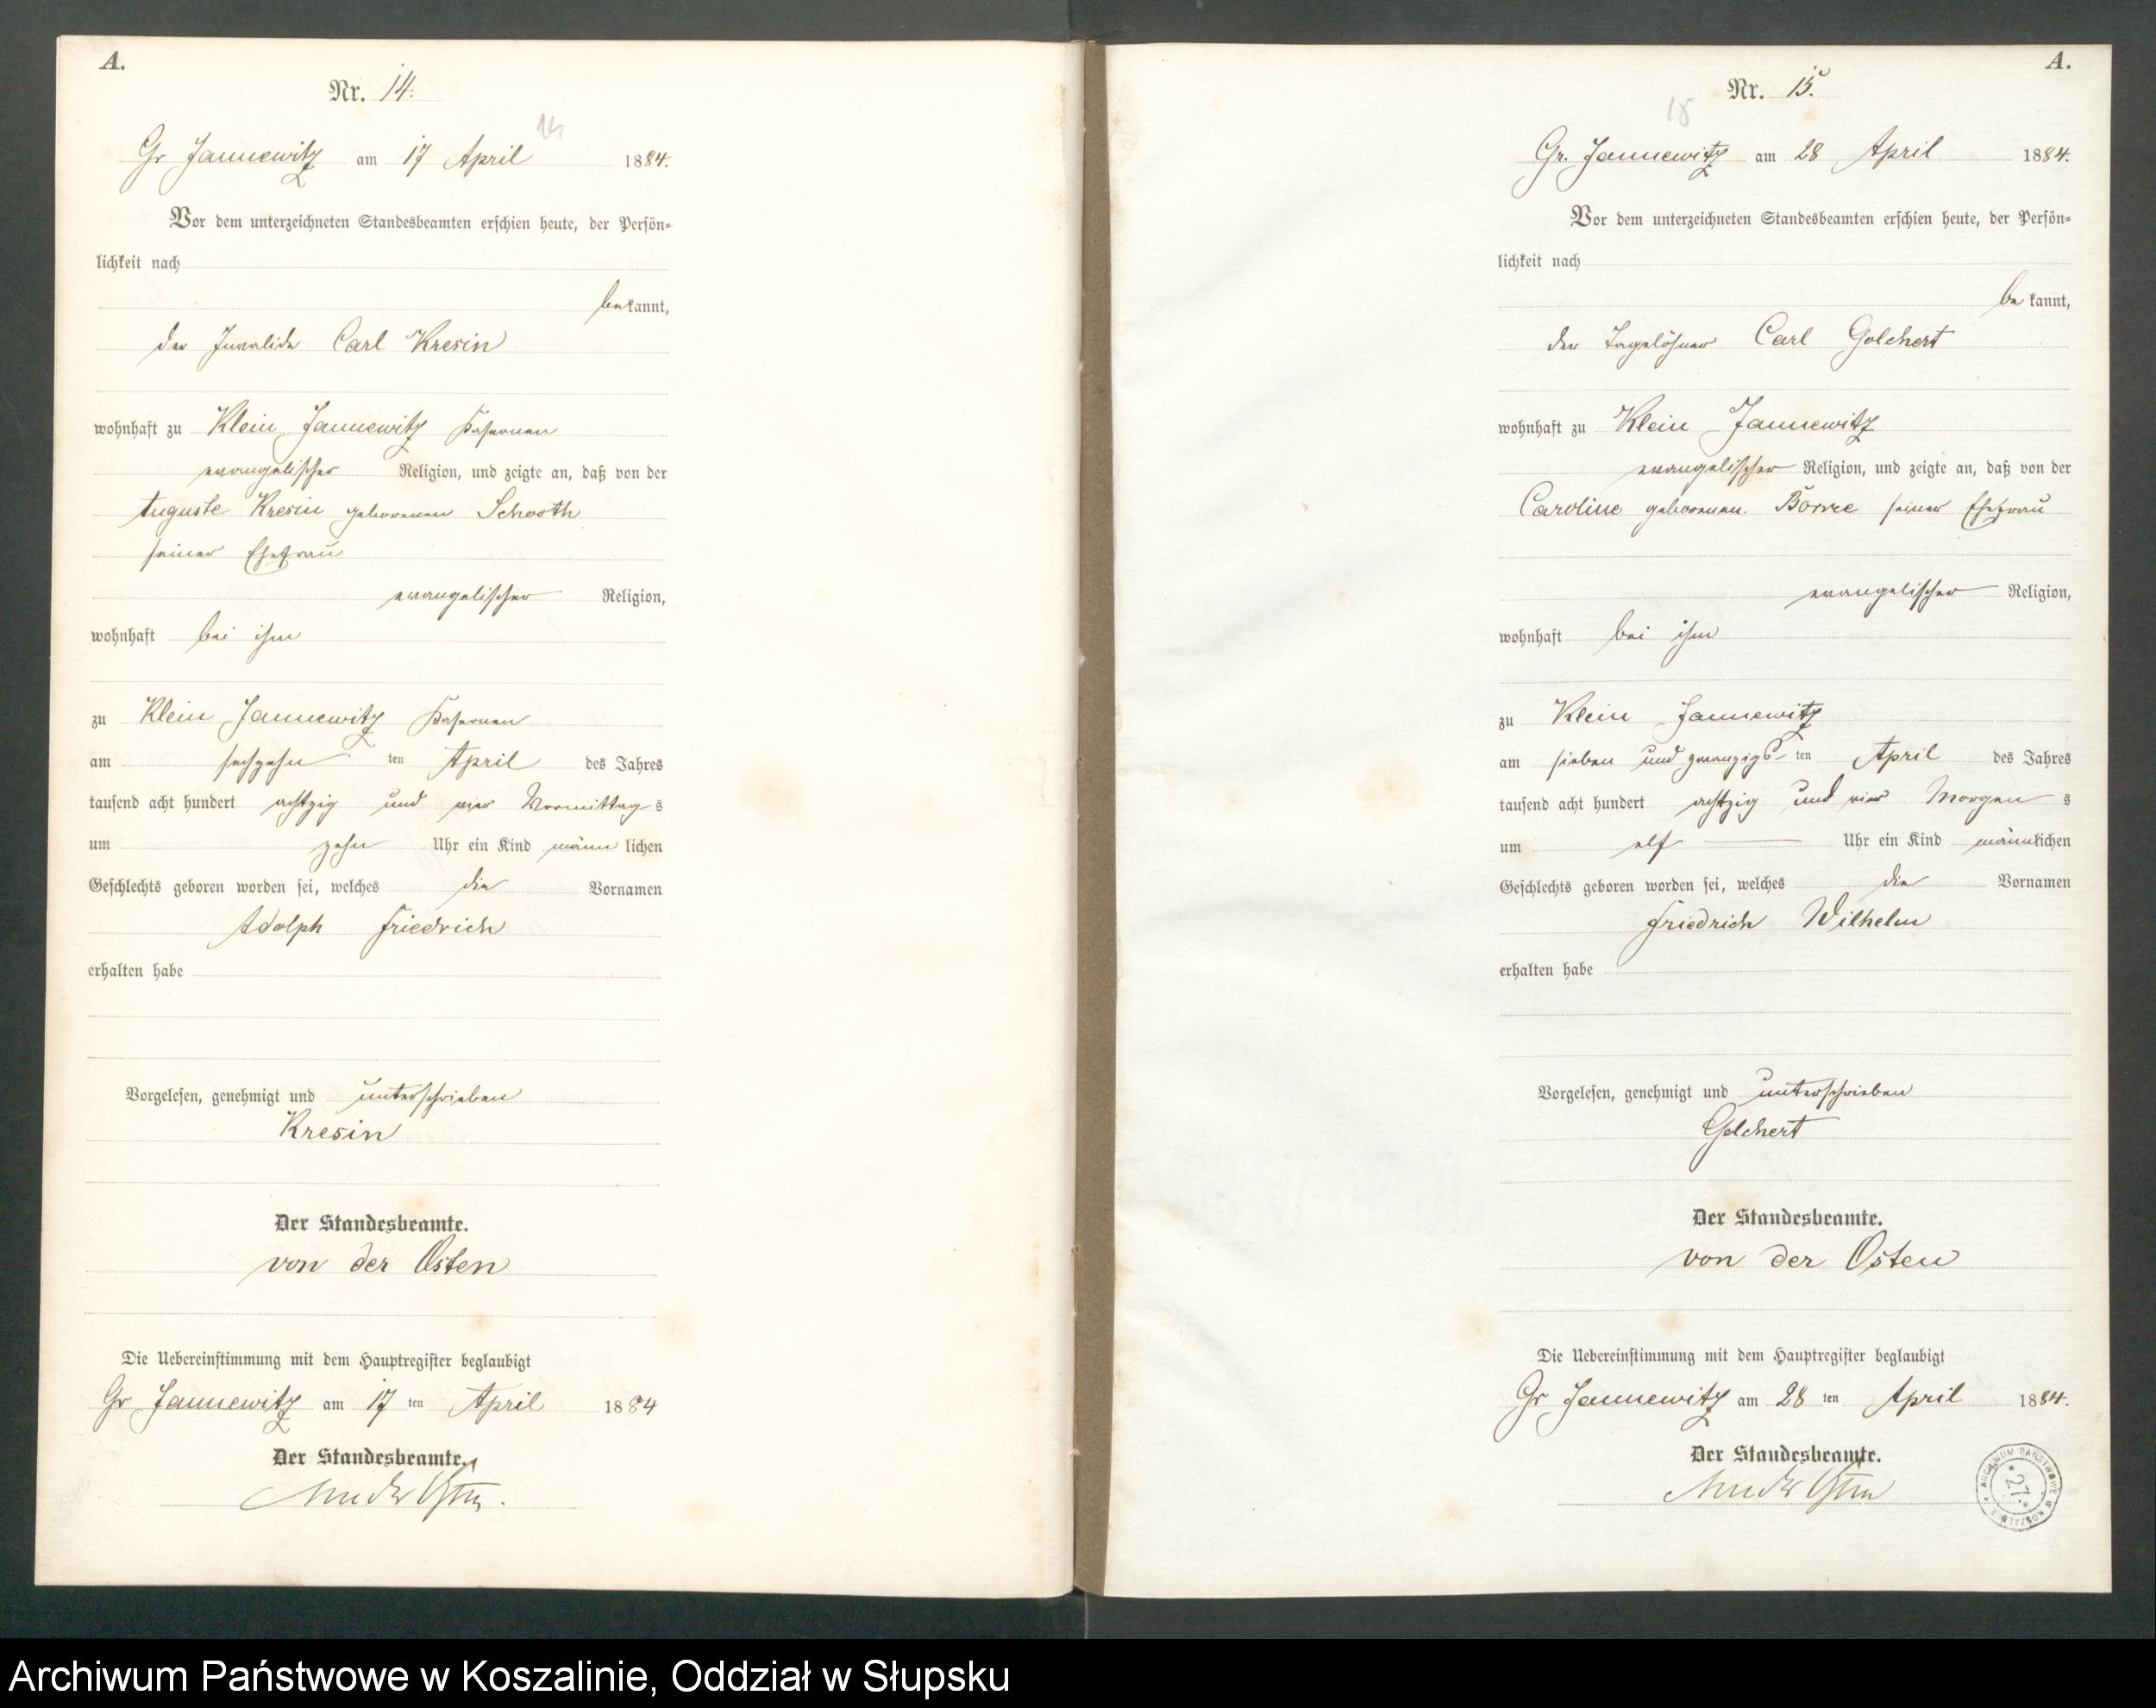 A.
Nr. 14.
14
Gr Jannewitz am 17 April 1884.
Vor dem unterzeichneten Standesbeamten erschien heute, der Persön-
lichkeit nach
bekannt,
der Invalide Carl Kresin
wohnhaft zu Klein Jannewitz
evangelischer Religion, und zeigte an, daß von der
Auguste Kresin geborenen Schooth
seiner Ehefrau
evangelischer Religion,
wohnhaft bei ihm
zu Klein Jannewitz
am sechzehn ten April des Jahres
tausend acht hundert achtzig und vier Vormittags
um zehn Uhr ein Kind männlichen
Geschlechts geboren worden sei, welches die Vornamen
Adolph Friedrich
erhalten habe
Vorgelesen, genehmigt und unterschrieben
Kresin
Der Standesbeamte.
von der Osten
Die Uebereinstimmung mit dem Hauptregister beglaubigt
Gr Jannewitz am 17 ten April 1884
Der Standesbeamte.
von der Osten.
A.
Nr. 15.
15
Gr. Jannewitz am 28 April 1884.
Vor dem unterzeichneten Standesbeamten erschien heute, der Persön-
lichkeit nach
bekannt,
der Tagelöhner Carl Golchert
wohnhaft zu Klein Jannewitz
evangelischer Religion, und zeigte an, daß von der
Caroline geborenen Borre seiner Ehefrau
evangelischer Religion,
wohnhaft bei ihm
zu Klein Jannewitz
am sieben und zwanzigsten April des Jahres
tausend acht hundert achtzig und vier Morgens
um elf Uhr ein Kind männlichen
Geschlechts geboren worden sei, welches die Vornamen
Friedrich Wilhelm
erhalten habe
Vorgelesen, genehmigt und unterschrieben
Golchert
Der Standesbeamte.
von der Osten
Die Uebereinstimmung mit dem Hauptregister beglaubigt
Gr Jannewitz am 28 ten April 1884.
Der Standesbeamte.
von der Osten
ARCHIWUM PAŃSTWOWE W KOSZALINIE
* 27 *
Archiwum Państwowe w Koszalinie, Oddział w Słupsku